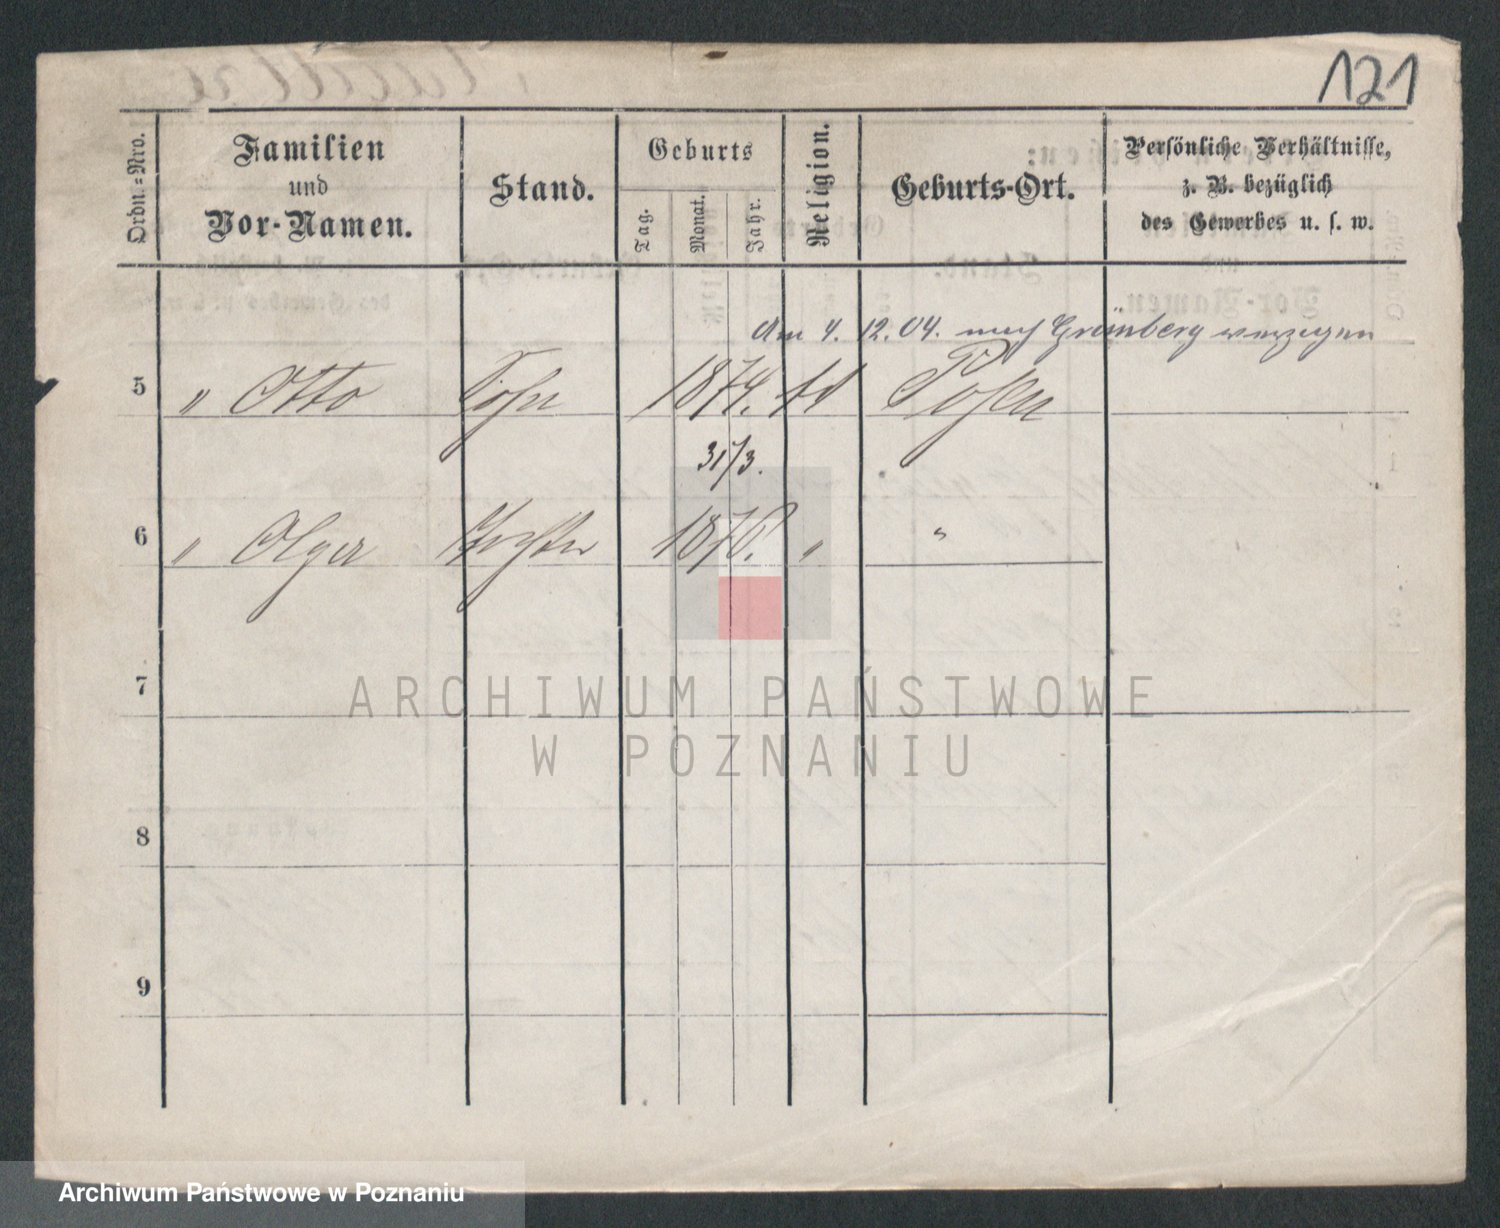 121
Ordn.=Nro.
Familien
und
Vor-Namen.
Stand.
Geburts
Tag.
Monat.
Jahr.
Religion.
Geburts-Ort.
Persönliche Verhältnisse,
z. B. bezüglich
des Gewerbes u. s. w.
Am 4. 12. 04. nach Grünberg verzogen
5 " Otto Sohn 1874. Posen
31/3.
6 " Olga Tochter 1876. " "
7
ARCHIWUM PAŃSTWOWE
W POZNANIU
8
9
Archiwum Państwowe w Poznaniu